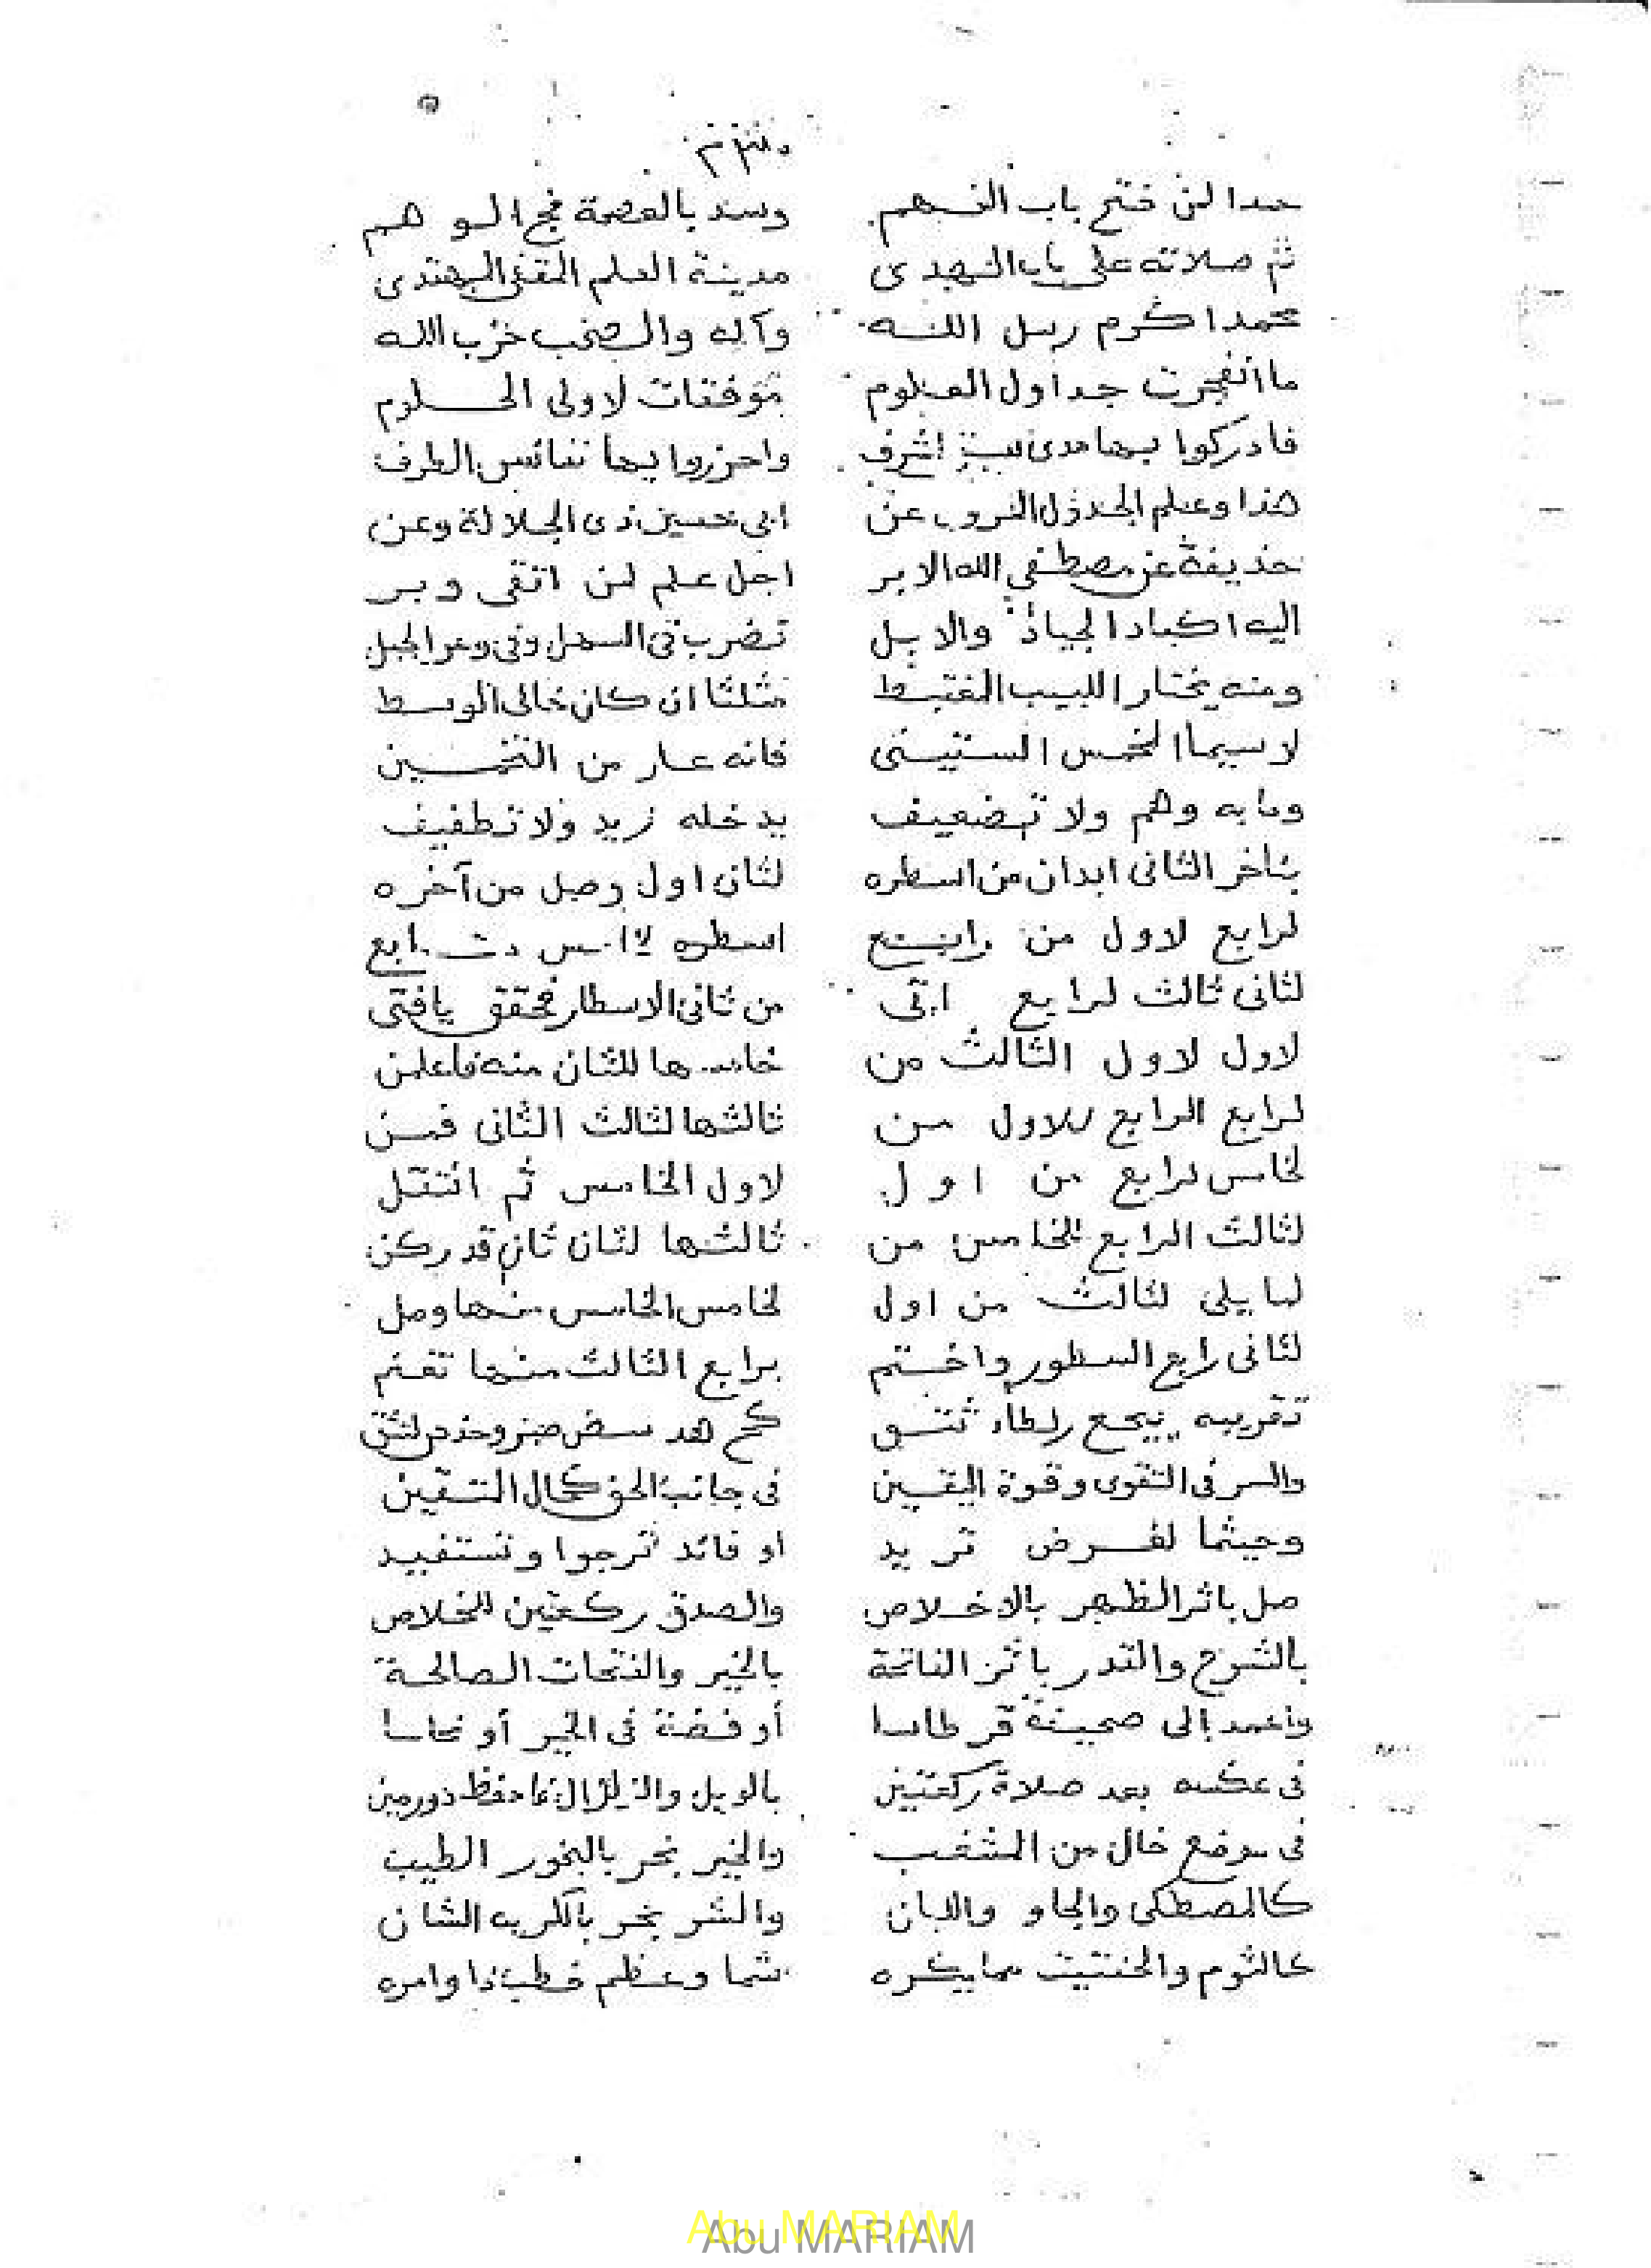 حمدا لمن فتح باب الفهم وسد بالعصمة فج الوهم
ثم صلاته على باب الهدى مدينة العلم المقفى المهتدى
محمد اكرم رسل الله وآله والصحب حزب الله
ما انفجرت جداول العلوم بمؤفتات لاولى الحلوم
فادركوا بها مدى اشرف واحزروا بها نفائس الطرف
هذا وعلم الجدول المروى عن ابى حسين ذى الجلالة وعن
حذيفة عن مصطفى الله الابر اجل علم لمن اتقى وبر
اليه اكباد الجياد والابل تضرب فى السهل وفى وعر الجبل
ومنه يختار اللبيب المغتبط مثلثا ان كان خالى الوسط
لاسيما المخمس الستينى فانه عار من التخمين
وما به وهم ولا تضعيف يدخله زيد ولا تطفيف
بئاخر الثانى ابدان من اسطره لثان اول وصل من آخره
لرابع لاول من رابع اسطره
لثانى ثالث لرابع اتى من ثانى الاسطار فحقق يافتى
لاول لاول الثالث من خامسها للثان منه فاعلمن
لرابع الرابع للاول من ثالثها لثالث الثانى فمن
لخامس لرابع من اول لاول الخامس ثم انتقل
لثالث الرابع للخامس من ثالثها لثان ثان قد ركن
لما يلى لثالث من اول لخامس الخامس منها وصل
لثانى رابع السطور واختم برابع الثالث منها تغنم
تقريبه
والسر فى التقوى وقوة اليقين فى جانب الحق كمال المتقين
وحيثما لغرض تريد او فائد ترجوا وتستفيد
صل باثر الظهر بالاخلاص والصدق ركعتين للخلاص
بالشرح والقدر باثر الفاتحة بالخير والفتحات الصالحة
واعمد إلى صحيفة قرطاسا أو فضة فى الخير أو نحاسا
فى عكسه بعد صلاة ركعتين بالويل والزلزال
فى موضع خال من المشغب والخير بخر بالبخور الطيب
كالمصطكى والجاو واللبان والشر بخر بالكريه الشان
كالثوم والحنتيت مما يكره شما وعظم قطب ذا وامره
Abu MARIAM